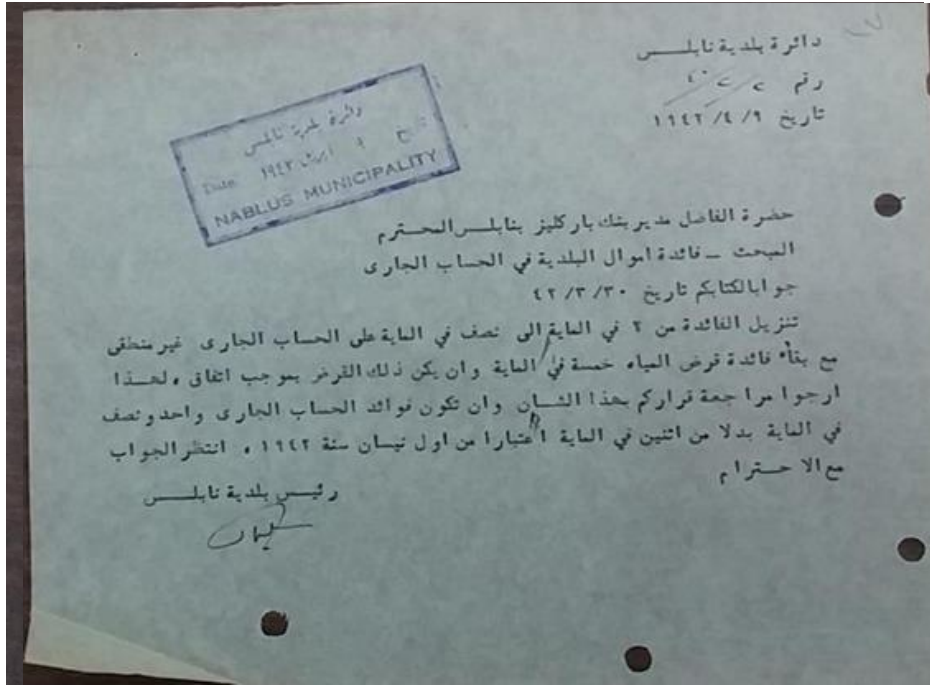 دائرة بلدية نابلس
رقم
تاريخ ٩/ ٤/ ١٩٤٢
دائرة بلدية نابلس
تاريخ ٩ ابريل ١٩٤٢ Date
NABLUS MUNICIPALITY
حضرة الفاضل مدير بنك باركليز بنابلس المحترم
المبحث ــ فائدة اموال البلدية في الحساب الجارى
جوابالكتابكم تاريخ ٣٠/ ٣/ ٤٢
تنزيل الفائدة من ٢ في الماية الى نصف في الماية على الحساب الجارى غير منطقى
مع بقاء فائدة قرض المياه خمسة في الماية وان يكن ذلك القرض بموجب اتفاق ، لهذا
ارجوا مراجعة قراركم بهذا الشان وان تكون فوائد الحساب الجارى واحدونصف
في الماية بدلا من اثنين في الماية اعتبارا من اول نيسان سنة ١٩٤٢ ، انتظر الجواب
مع الاحترام
رئيس بلدية نابلس